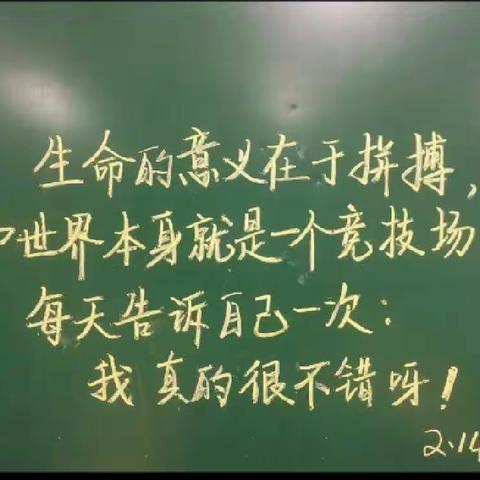 生命的意义在于拼搏，
世界本身就是一个竞技场
每天告诉自己一次：
我真的很不错呀！
2.14